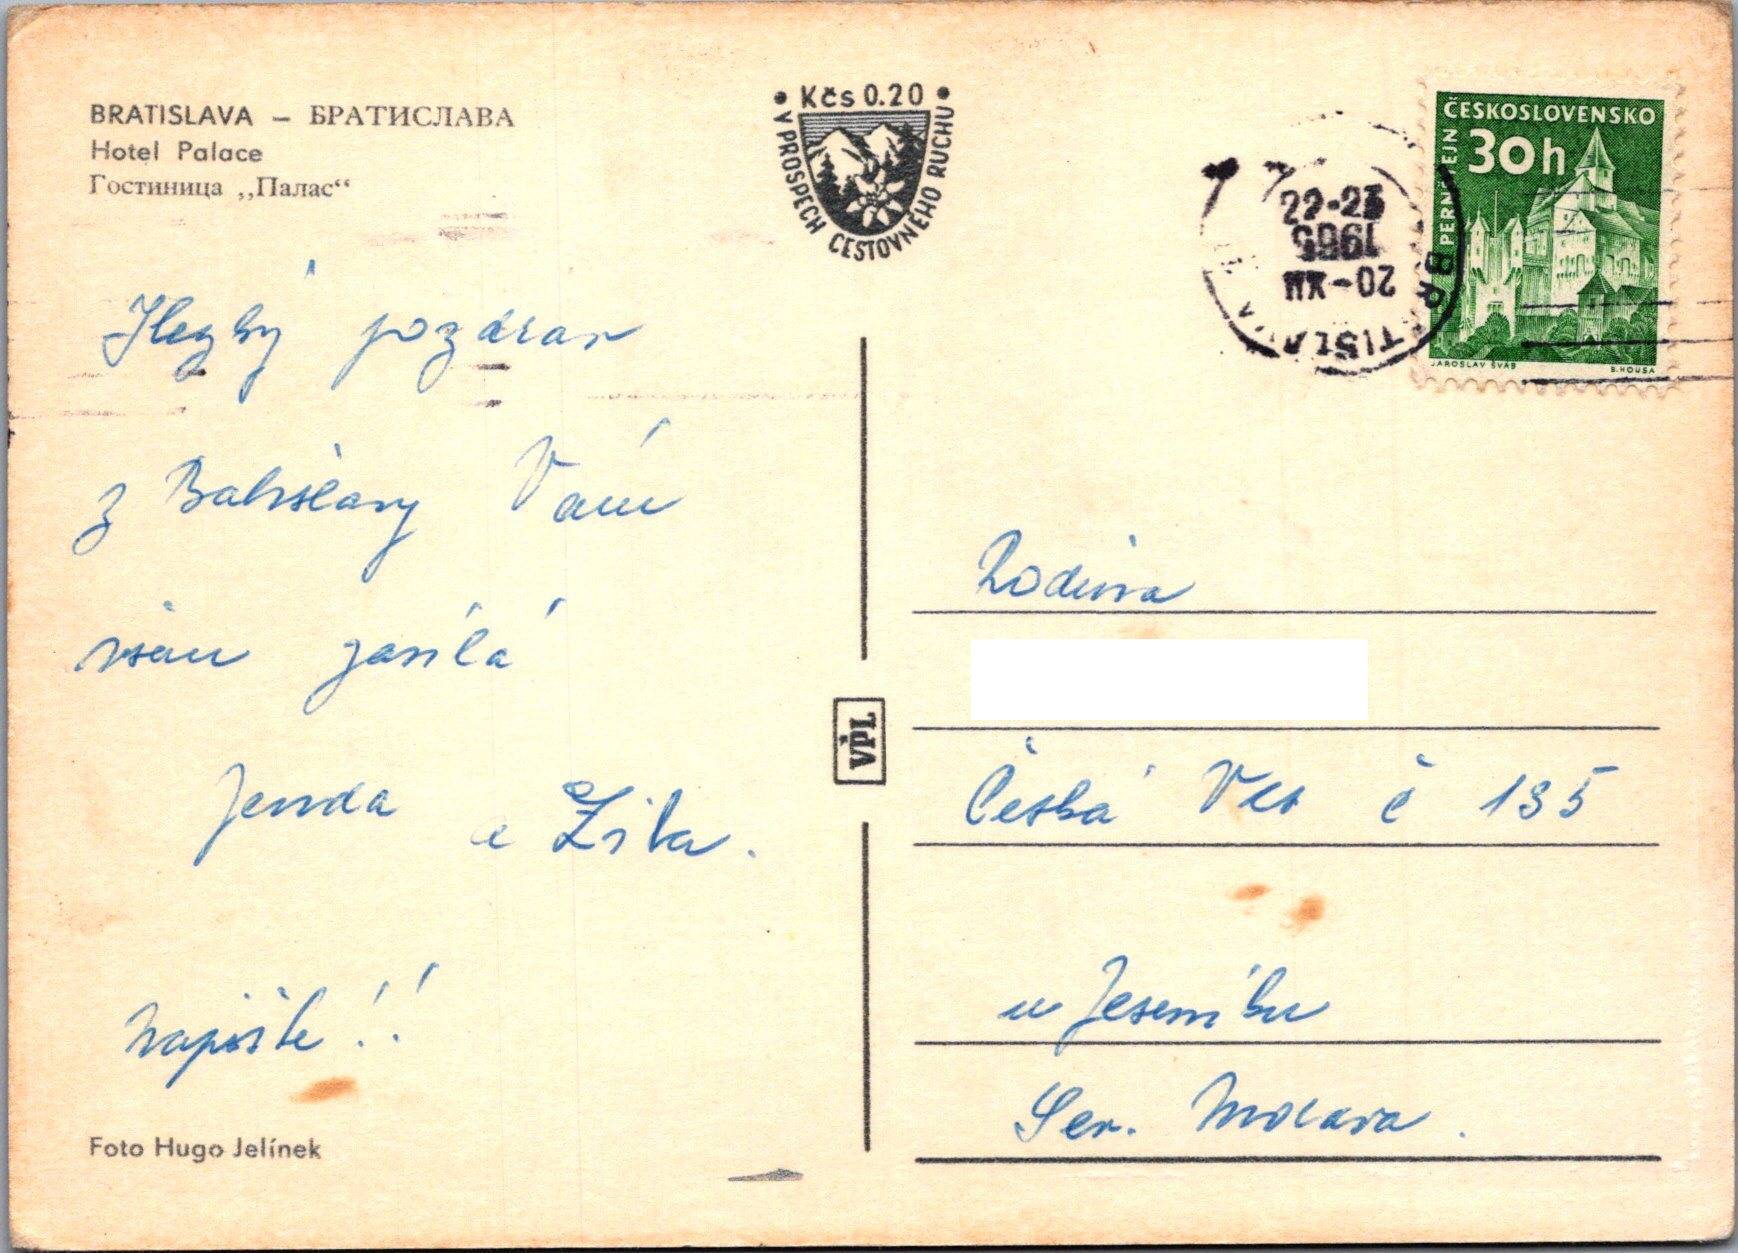 BRATISLAVA – БРАТИСЛАВА
Hotel Palace
Гостиница „Палас“
• Kčs 0.20 •
V PROSPECH CESTOVNÉHO RUCHU
ČESKOSLOVENSKO
30h
PERNŠTEJN
JAROSLAV ŠVÁB
B. HOUSA
22-23
1965
20-XII
BRATISLAVA
Hezký pozdrav
z Bratislavy Vám
všem zasílá
Jenda a Zita.
napište!!
VPL
Rodina
Česká Ves č 135
u Jeseníku
Sev. Morava.
Foto Hugo Jelínek